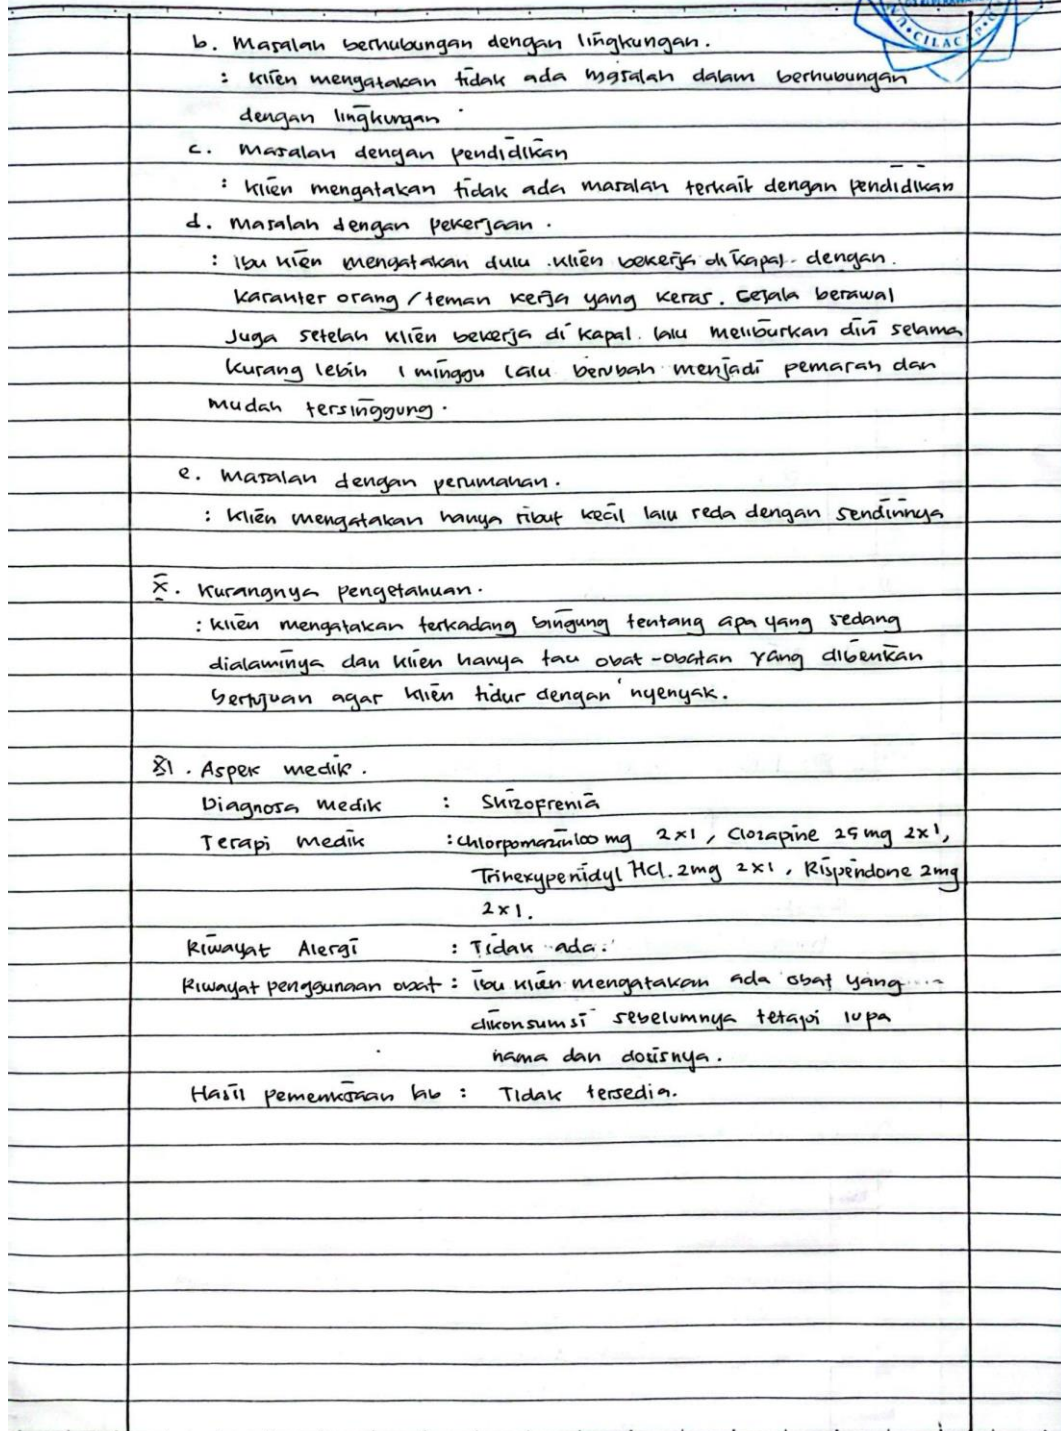 CILACAP
b. Masalah berhubungan dengan lingkungan.
: klien mengatakan tidak ada masalah dalam berhubungan
dengan lingkungan
c. Masalah dengan pendidikan
: klien mengatakan tidak ada masalah terkait dengan pendidikan
d. Masalah dengan pekerjaan.
: Ibu klien mengatakan dulu klien bekerja di kapal dengan
karakter orang / teman kerja yang keras. Gejala berawal
Juga setelah klien bekerja di kapal. lalu meliburkan diri selama
kurang lebih 1 minggu lalu berubah menjadi pemarah dan
mudah tersinggung.
e. Masalah dengan perumahan.
: Klien mengatakan hanya ribut kecil lalu reda dengan sendirinya
X. Kurangnya pengetahuan.
: klien mengatakan terkadang bingung tentang apa yang sedang
dialaminya dan klien hanya tau obat-obatan yang diberikan
bertujuan agar klien tidur dengan nyenyak.
XI. Aspek medik.
Diagnosa medik : Skizofrenia
Terapi medik : Chlorpomazin 100 mg 2x1, Clozapine 25 mg 2x1,
Trihexypenidyl Hcl. 2mg 2x1, Risperidone 2mg
2x1.
Riwayat Alergi : Tidak ada.
Riwayat penggunaan obat : ibu klien mengatakan ada obat yang
dikonsumsi sebelumnya tetapi lupa
nama dan dosisnya.
Hasil pemeriksaan lab : Tidak tersedia.